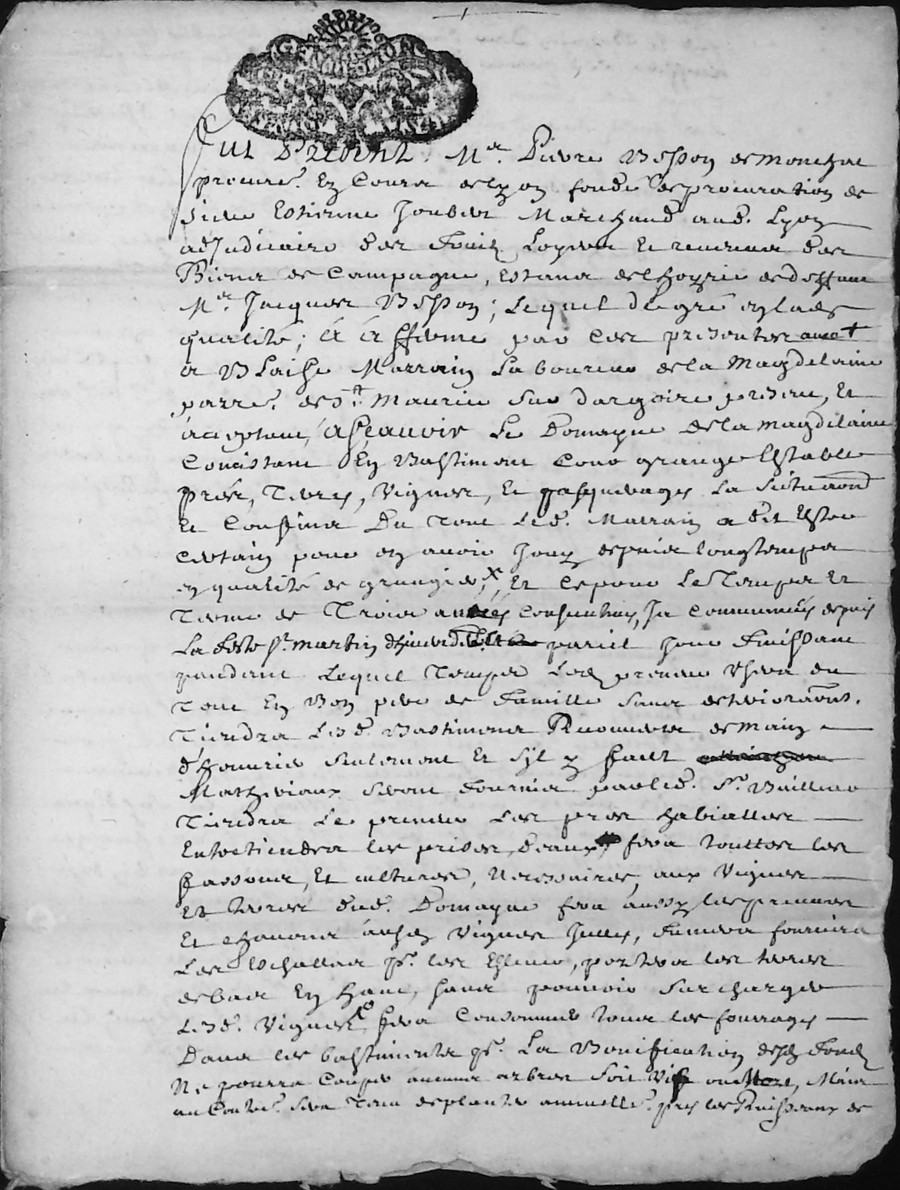 Fut Présent Mre Pierre Besson de monchat
procurr. En Cours de Lyon fondé de procuration de
Sieur Estienne Joubert Marchand aud. Lyon
adjudicaire des Loyers Et revenus des
Biens de Campagne, Estans de d'hoyrie de deffunt
Mre Jacques Besson; Lequel de gré en lade
qualité; a afferme par Ces presentes
a Blaise Marrain Laboureur de la Magdelaine
parre. de St Maurice Sur dargoire present, Et
acceptant, ascavoir Le Domayne de la magdelaine
Consistant En Bastiment Cour grange Estable
prés, Terres, Vignes, Et pasquerages La
Et Confins Du Tout Led. Marrain a dit Estre
Certain pour en avoir Jouy depuis longtemps
en qualité de granger x, Et Ce pour Le Temps Et
Terme de Trois années Consecutives, Ja Commencés depuis
La feste St. martin d'hiver pareil Jour finissant
pendant Lequel Temps Led. preneur Usera du
Tout En Bon pere de famille Sans
Tiendra Lesd. Bastimens de main
d'houvrier Seulement Et Sil y fault
Mathériaux Seront fournis par led. Sr. Bailleur
Tiendra Le preneur Les prés
Entretiendra les prises deaux, fera touttes les
fassons, Et cultures, Necessaires, aux Vignes
Et terres dud. Domayne fera aussy les
Et auxd. Vignes fournira
Les Echallas pr. les portera les terres
de bas En haut, sans pouvoir Surcharger
Lesd. Vignes fera Consommer tous les fourrages
Dans les bastiments pr. La Bonification desd. fonds
Ne pourra Couper aucuns arbres Soit Vifs ou Mort, Mais
au Contre. Sera Tenu de planter annuelle. prés les Ruisseaux de